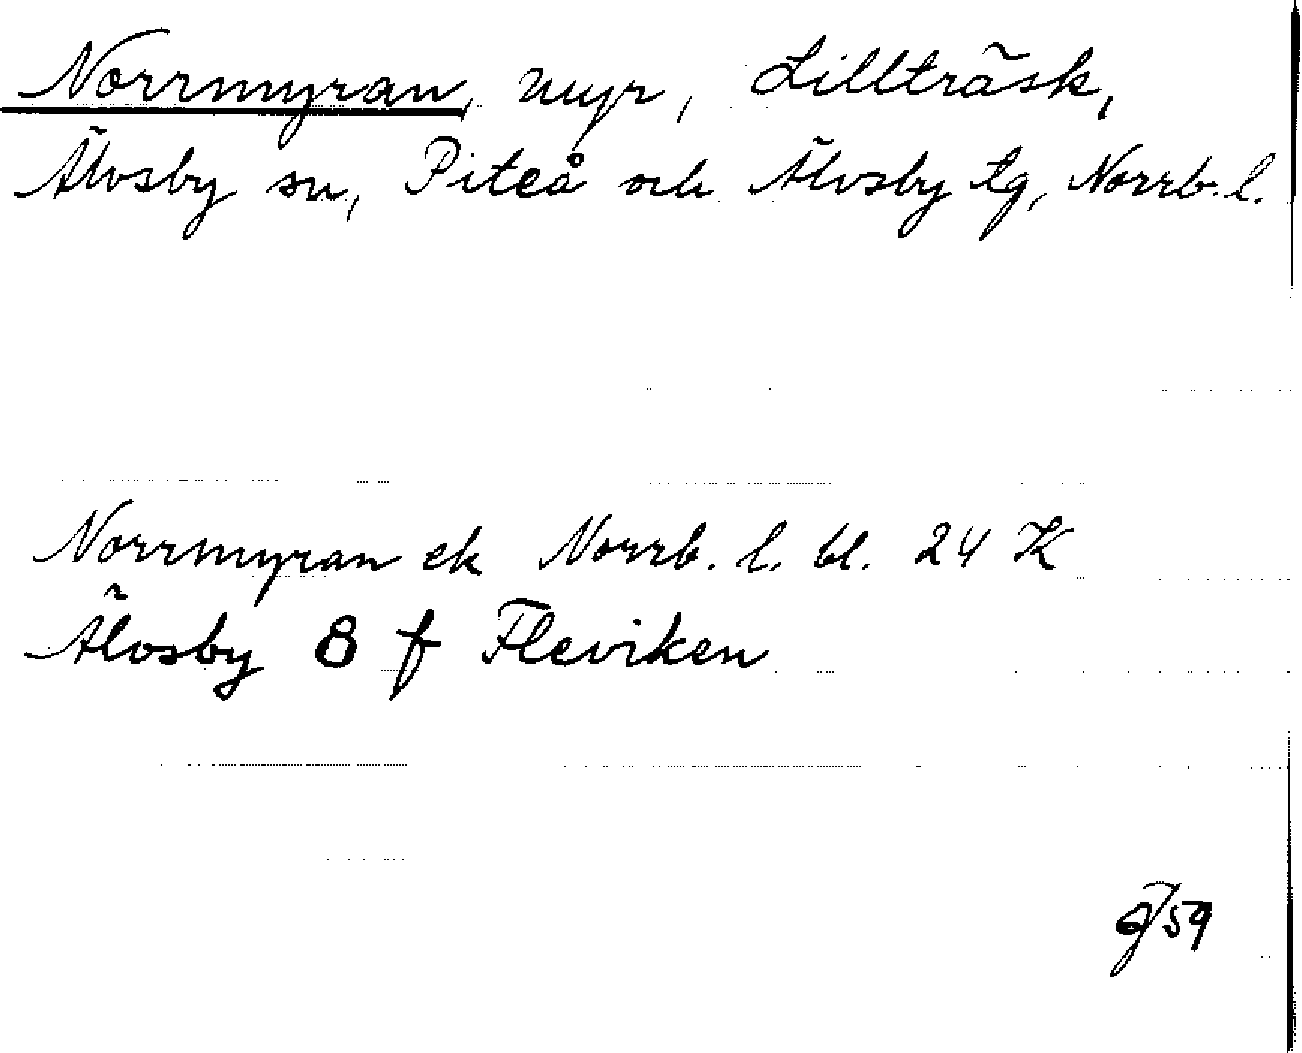 Norrmyran, myr, Lillträsk,
Älvsby sn, Piteå och Älvsby tg, Norrb. l.
Norrmyran ek Norrb. l. bl. 24 K
Älvsby 8 f Fleviken
59